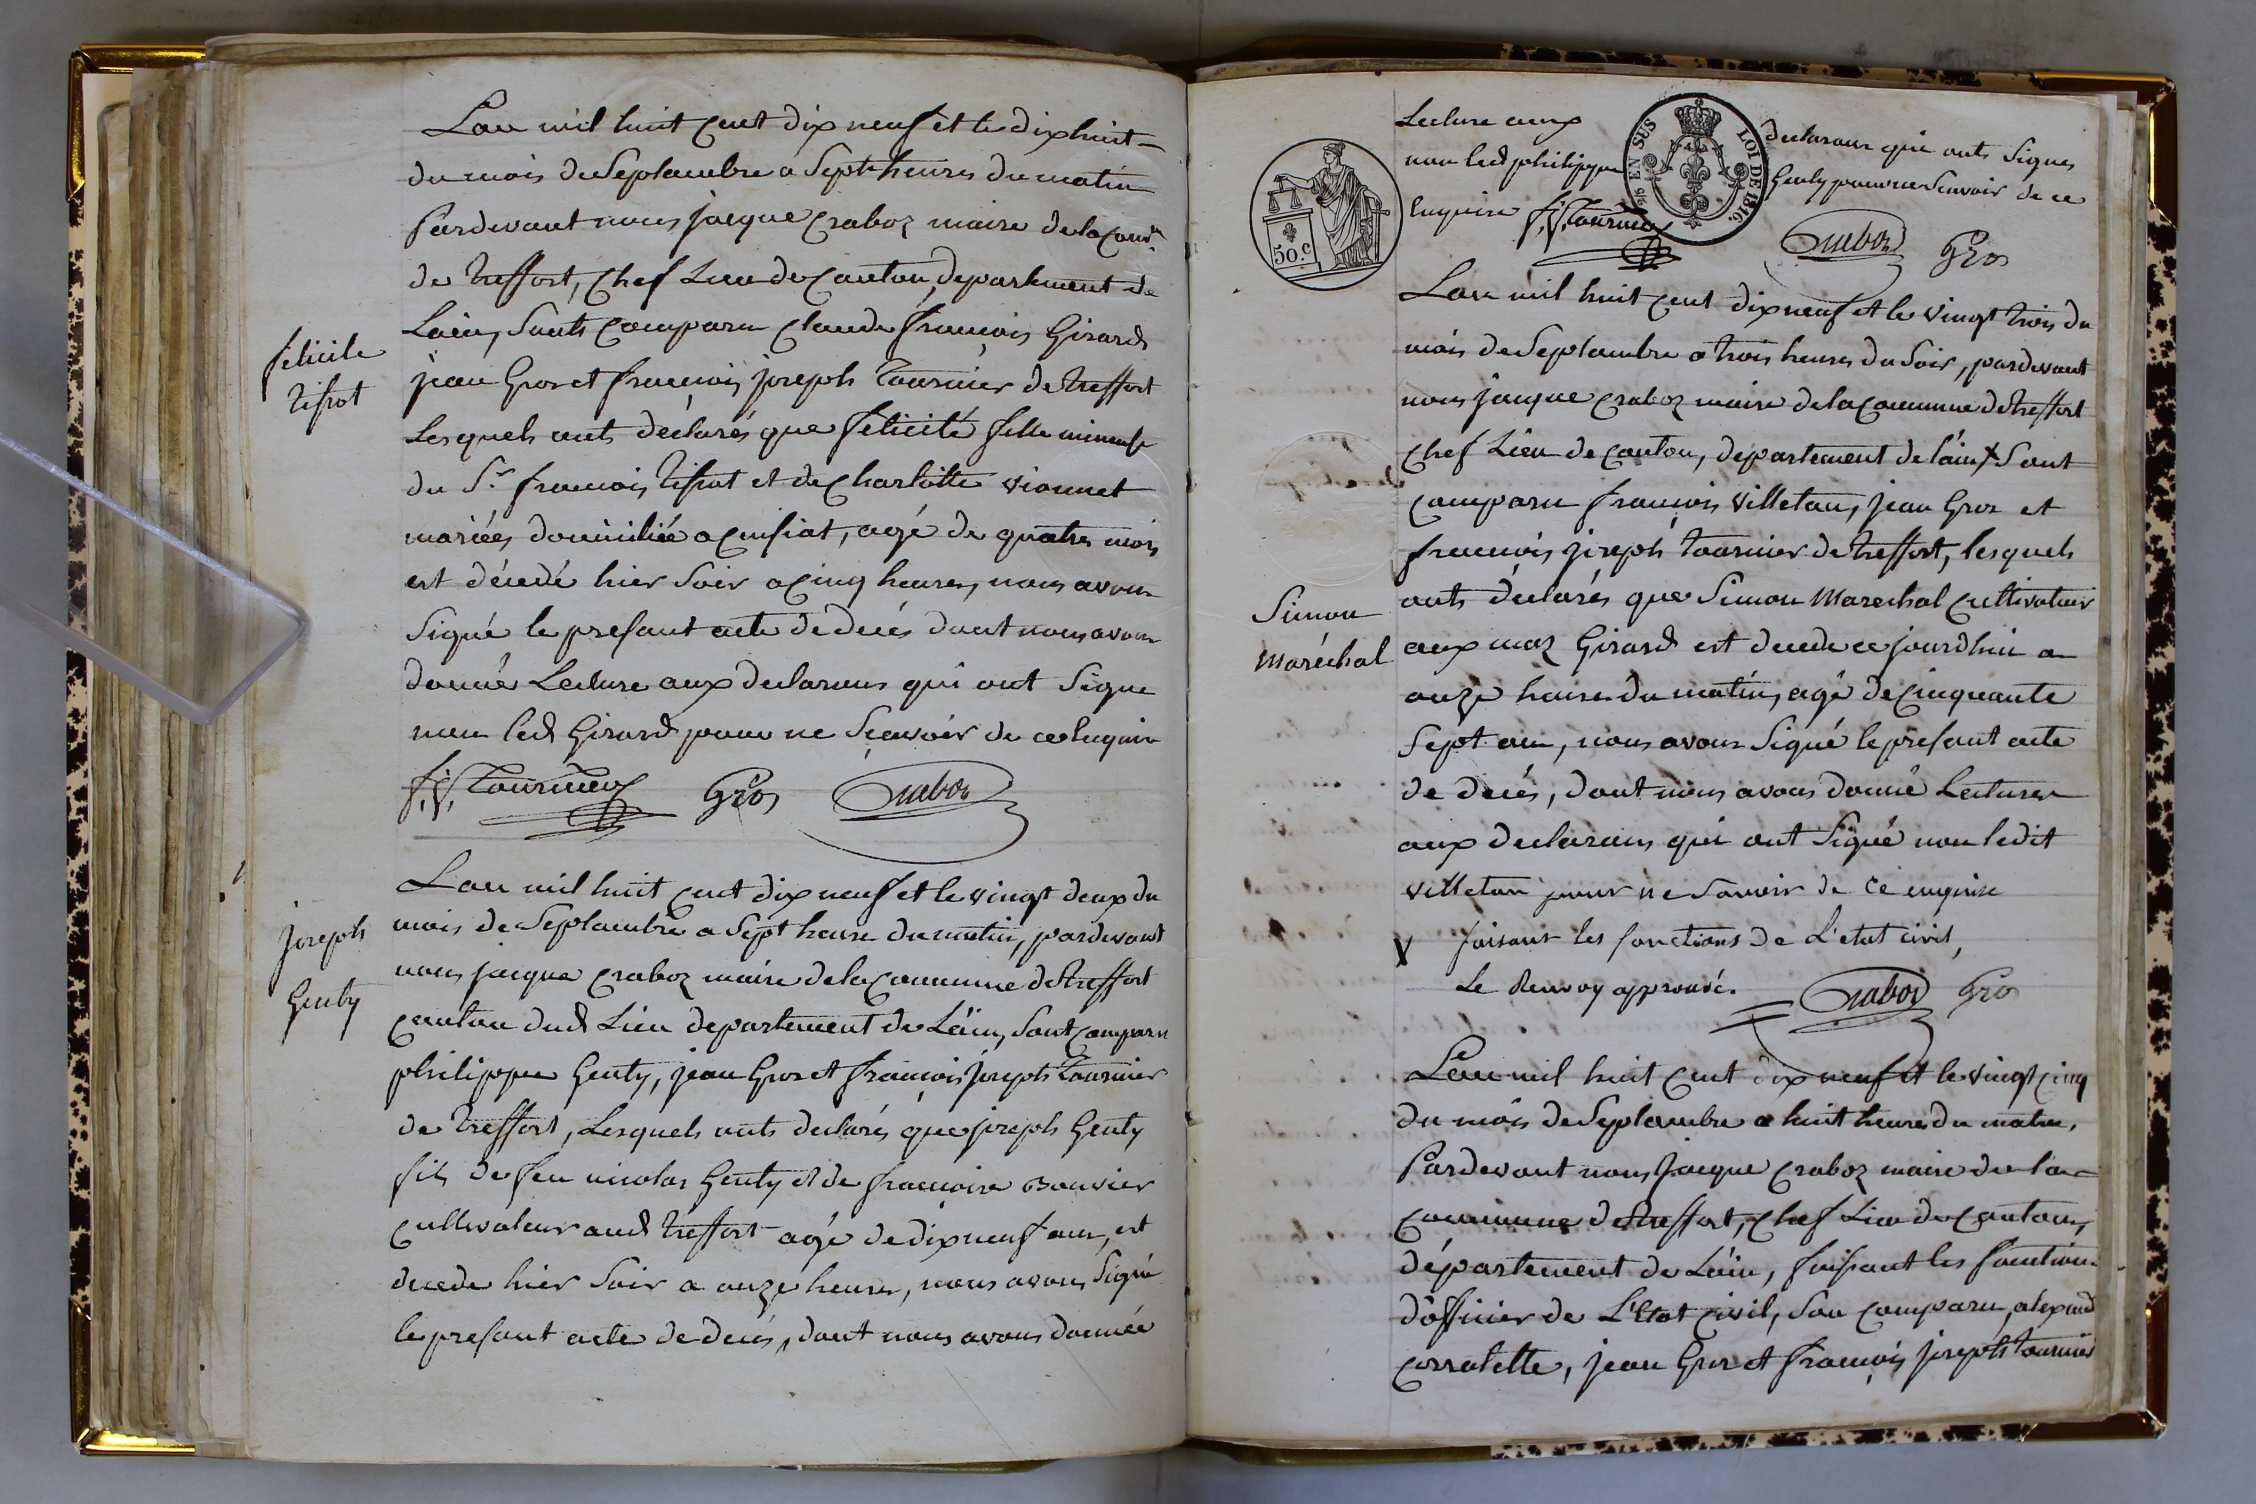 Lan mil huit cent dix neuf et le dix huit
du mois de Septambre a Sept heures du matin
Pardevant nous jacque Craboz maire de la Comne
de Treffort, Chef Lieu de Canton, departement de
Lain, Sonts comparu Claude françois Girard
jean Gros et françois joseph Tournier de Treffort
Lesquels onts déclarés que felicité fille mineuse
du Sr. françois Tissot et de Charlotte Vionnet
mariées domiciliée a Cuisiat, agé de quatre mois
est décedé hier Soir a Cinq heures, nous avons
Signé le presant acte de decés dont nous avons
donné Lecture aux declarans qui ont Signe
non led Girard pour ne Scavoir de ce Enquis
felicite
Tissot
f. j. Tournier Gros Craboz
Lan mil huit cent dix neuf et le vingt deux du
mois de Septambre a Sept heure du matin, pardevant
nous jacque Craboz maire de la Commune de Treffort
Canton dud Lieu departement de Lain, Sont Comparu
philippe Genty, jean Gros et françois joseph Tournier
de Treffort, Lesquels onts declarés que joseph Genty
fils de feu nicolas Genty et de françoise Bouvier
Cultivateur aud Treffort agé de dix neuf ans, est
decede hier Soir a onze heures, nous avons Signé
le presant acte de decés, dont nous avons donnée
joseph
Genty
Lecture aux declarans qui onts Signes
non led philippe Genty pour ne Scavoir de ce
Enquire f. j. Tournier Craboz Gros
50.c
EN SUS LOI DE 1816.
Lan mil huit cent dix neuf et le vingt trois du
mois de Septambre a trois heures du Soir, pardevant
nous jacque Craboz maire de la Commune de Treffort
Chef Lieu de Canton, departement de lain X Sont
Comparu françois Villetan, jean Gros et
françois joseph Tournier de Treffort, lesquels
onts declarés que Simon Marechal Cultivateur
aux maz Girard est decede ce jourdhui a
onze heures du matin, agé de Cinquante
Sept ans, nous avons Signé le présant acte
de decés, dont nous avons donné Lecture
aux declarans qui ont Signé non ledit
Villetan pour ne Scavoir de ce enquise
X faisant les fonctions de L'etat civil,
Le Renvoy approuvé. Craboz Gros
Simon
Maréchal
Lan mil huit Cent dix neuf et le vingt Cinq
du mois de Septambre a huit heures du matin,
Pardevant nous Jacque Craboz maire de la
Commune de Treffort, Chef Lieu de Canton,
département de Lain, faisant les fonctions
d'officier de L'Etat Civil, Son Comparu, alexand
Corratette, jean Gros et françois joseph Tournier